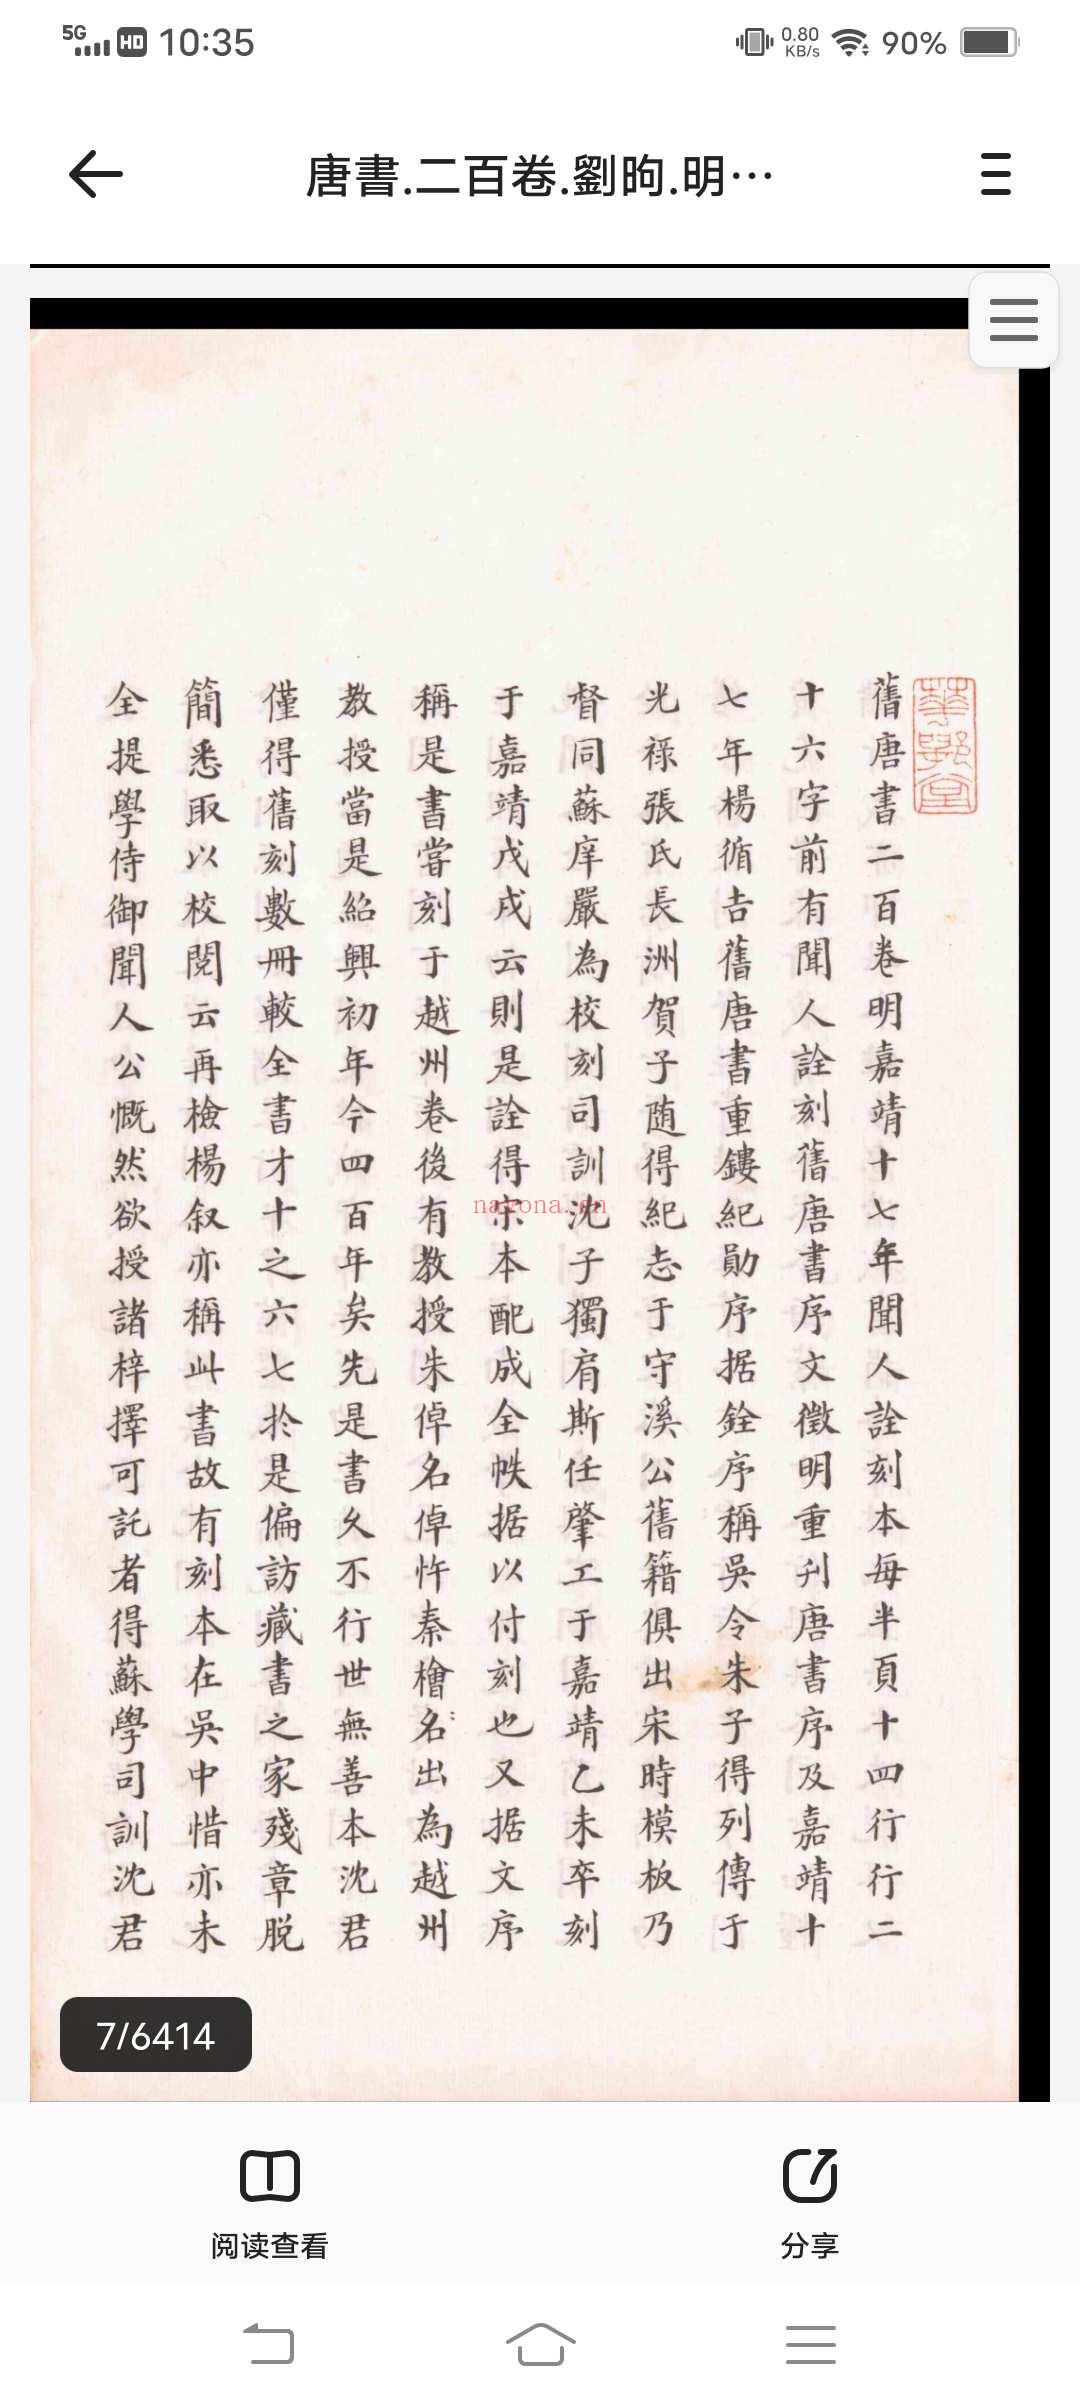 5G HD 10:35 0.80 KB/s 90%
唐書.二百卷.劉昫.明…
華鄂堂
舊唐書二百卷明嘉靖十七年聞人詮刻本每半頁十四行行二
十六字前有聞人詮刻舊唐書序文徵明重刋唐書序及嘉靖十
七年楊循吉舊唐書重鏤紀勛序据銓序稱吳令朱子得列傳于
光祿張氏長洲賀子随得紀志于守溪公舊籍俱出宋時模板乃
督同蘇庠嚴為校刻司訓沈子獨肩斯任肇工于嘉靖乙未卒刻
于嘉靖戊戌云則是詮得宗本配成全帙据以付刻也又据文序
稱是書嘗刻于越州卷後有教授朱倬名倬忤秦檜名出為越州
教授當是紹興初年今四百年矣先是書久不行世無善本沈君
僅得舊刻數冊較全書才十之六七於是偏訪藏書之家殘章脱
簡悉取以校閱云再檢楊叙亦稱此書故有刻本在吳中惜亦未
全提學侍御聞人公慨然欲授諸梓擇可託者得蘇學司訓沈君
nayona.cn
7/6414
阅读查看
分享